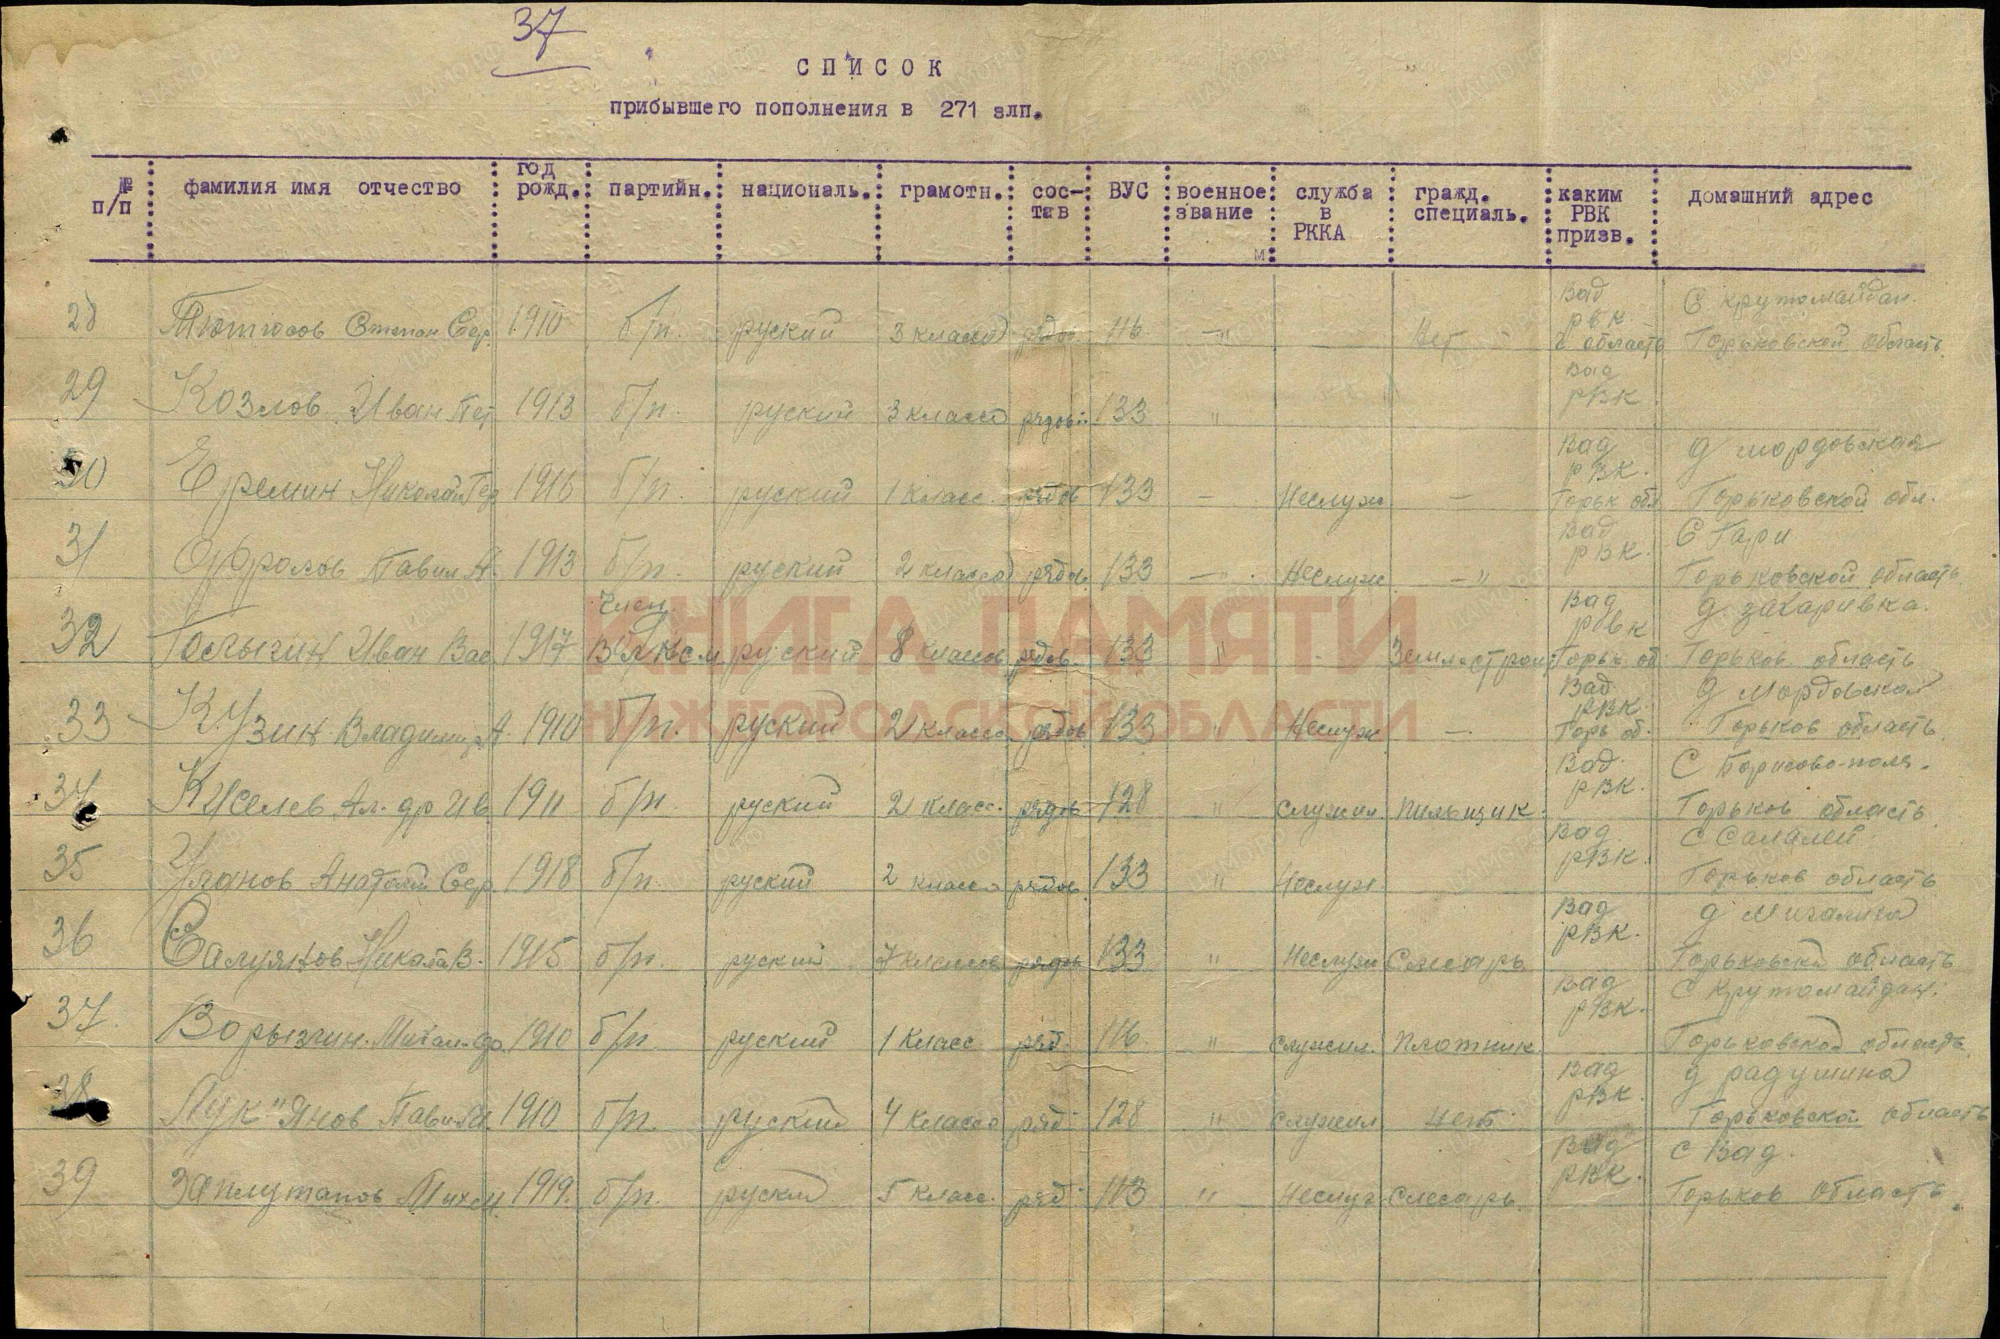 37
СПИСОК
прибывшего пополнения в 271 злп.
№ п/п фамилия имя отчество год рожд. партийн. националь. грамотн. сос-тав ВУС военное звание служба в РККА гражд. специаль. каким РВК призв. домашний адрес
м
28 Степан Сер. 1910 б/п. руский 3 класса рядов 116 —"— — Нет Вад РВК г. область С. крутомайдан. Горьковской область.
29 Козлов Иван Пет 1913 б/п. руский 3 класса рядов 133 " Вад РВК.
30 Еремин Николай 1916 б/п. руский 1 класс. рядов 133 — Неслуж — Вад РВК. Горьк обл д мордовская Горьковской обл.
31 Фролов Павил А. 1913 б/п. руский 2 класса рядов 133 —" Неслуж —" Вад РВК. С Гари Горьковской область
32 Иван Вас 1917 член ВЛКСМ руский 8 классов рядов 133 " - Вад РВК Горьк об д. захаривка. Горьков область
33 Кузин Владимир А. 1910 б/п. руский 2 класса рядов 133 " Неслуж — Вад РВК. Горь об. д Мордовской Горьков область
34 Киселев Ал-др Ив 1911 б/п. руский 2 класс. рядов 128 " служил Пильщик. Вад РВК. С Борисово-поля. Горьков область
35 Уланов Анатолий Сер. 1918 б/п. руский 2 класса рядов 133 " Неслуж Вад РВК. С Салалей Горьков область
36 В. 1915 б/п. руский 7 классов рядов 133 " Неслуж Слесарь Вад РВК. д Горьковской область
37. 1910 б/п. руский 1 Класс ряд. 116. " служил. Плотник Вад РВК. С крутомайдан. Горьковской область
38 Лук"Янов Павил 1910 б/п. руский 4 класса ряд 128 " служил нет Вад РВК. д радушина Горьковской область
39 1919. б/п. руский 5 класс. ряд 113 " Неслуж Слесарь. Вад РВК. С Вад. Горьков область.
КНИГА ПАМЯТИ
НИЖЕГОРОДСКОЙ ОБЛАСТИ